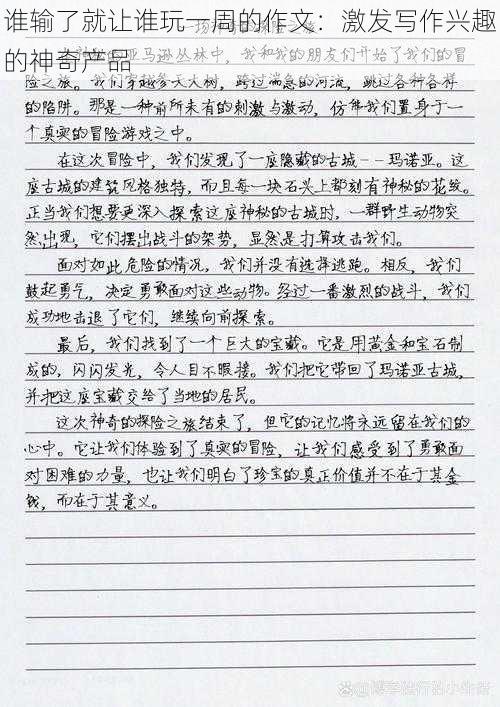 谁输了就让谁玩一周的作文：激发写作兴趣
的神奇产品
亚马逊丛林中，我和我的朋友们开始了我们的冒
险之旅。我们穿越参天大树，跨过湍急的河流，跳过各种各样
的陷阱。那是一种前所未有的刺激与激动，仿佛我们置身于一
个真实的冒险游戏之中。
在这次冒险中，我们发现了一座隐藏的古城--玛诺亚。这
座古城的建筑风格独特，而且每一块石头上都刻有神秘的花纹。
正当我们想要更深入探索这座神秘的古城时，一群野生动物突
然出现，它们摆出战斗的架势，显然是打算攻击我们。
面对如此危险的情况，我们并没有选择逃跑。相反，我们
鼓起勇气，决定勇敢面对这些动物。经过一番激烈的战斗，我们
成功地击退了它们，继续向前探索。
最后，我们找到了一个巨大的宝藏。它是用黄金和宝石制
成的，闪闪发光，令人目不暇接。我们把它带回了玛诺亚古城，
并把这座宝藏交给了当地的居民。
这次神奇的探险之旅结束了，但它的记忆将永远留在我们的
心中。它让我们体验到了真实的冒险，让我们感受到了勇敢面
对困难的力量，也让我们明白了珍宝的真正价值并不在于其金
钱，而在于其意义。